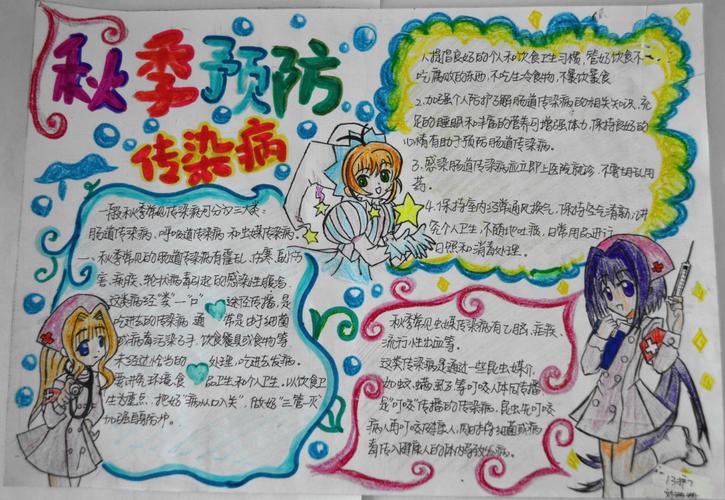 秋季预防
传染病
一般秋季常见传染病可分为三大类:
肠道传染病、呼吸道传染病和虫媒传染病
一、秋季常见的肠道传染病有霍乱、伤寒、副伤
寒、痢疾、轮状病毒引起的感染性腹泻
这类病经"粪"一"口"途径传播,是
吃进去的传染病,通常是由于细菌
或病毒污染了手、饮食餐具或食物等
未经过恰当的处理,吃进去发病。
要讲究环境、食品卫生和个人卫生,以饮食卫
生为重点,把好"病从口入关",做好"三管一灭"
加强自我防护。
人提倡良好的个人和饮食卫生习惯,管好饮食不
吃腐败的东西,不吃生冷食物,不暴饮暴食
2.加强个人防护了解肠道传染病的相关知识,充
足的睡眠和丰富的营养可增强体力,保持良好的
心情有助于预防肠道传染病。
3.感染肠道传染病应立即上医院就诊,不要胡乱用
药。
4.保持室内经常通风换气,保持空气清新,讲
究个人卫生,不随地吐痰,日常用品进行
日照和消毒处理。
秋季常见虫媒传染病有乙脑、疟疾、
流行性出血等。
这类传染病是通过一些昆虫媒介,
如蚊、螨、虱子等叮咬人体而传播
是"叮咬"传播的传染病,昆虫先叮咬
病人再叮咬健康人,同时将细菌或病
毒传入健康人的体内导致发病。